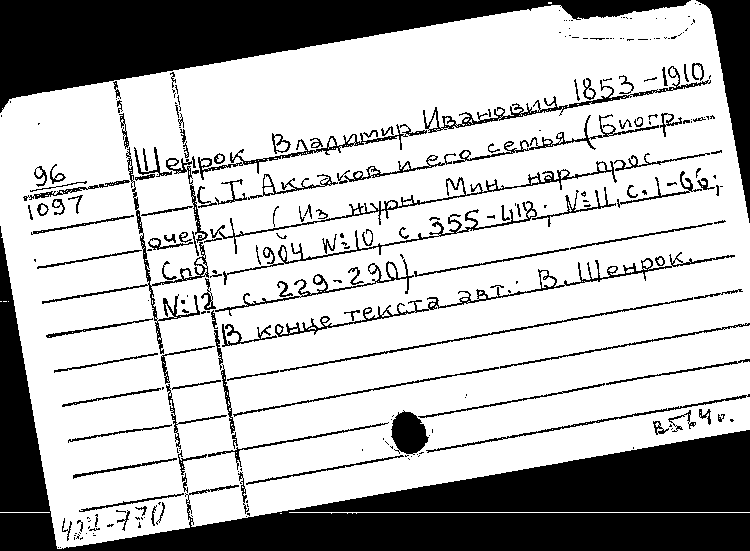 Шенрок, Владимир Иванович, 1853-1910
96
1097
С.Т. Аксаков и его семья. (Биогр.
очерк). (Из журн. Мин. нар. прос.
Спб., 1904. №10, с. 355-418; №11, с. 1-66;
№12, с. 229-290).
В конце текста авт.: В. Шенрок.
427-770